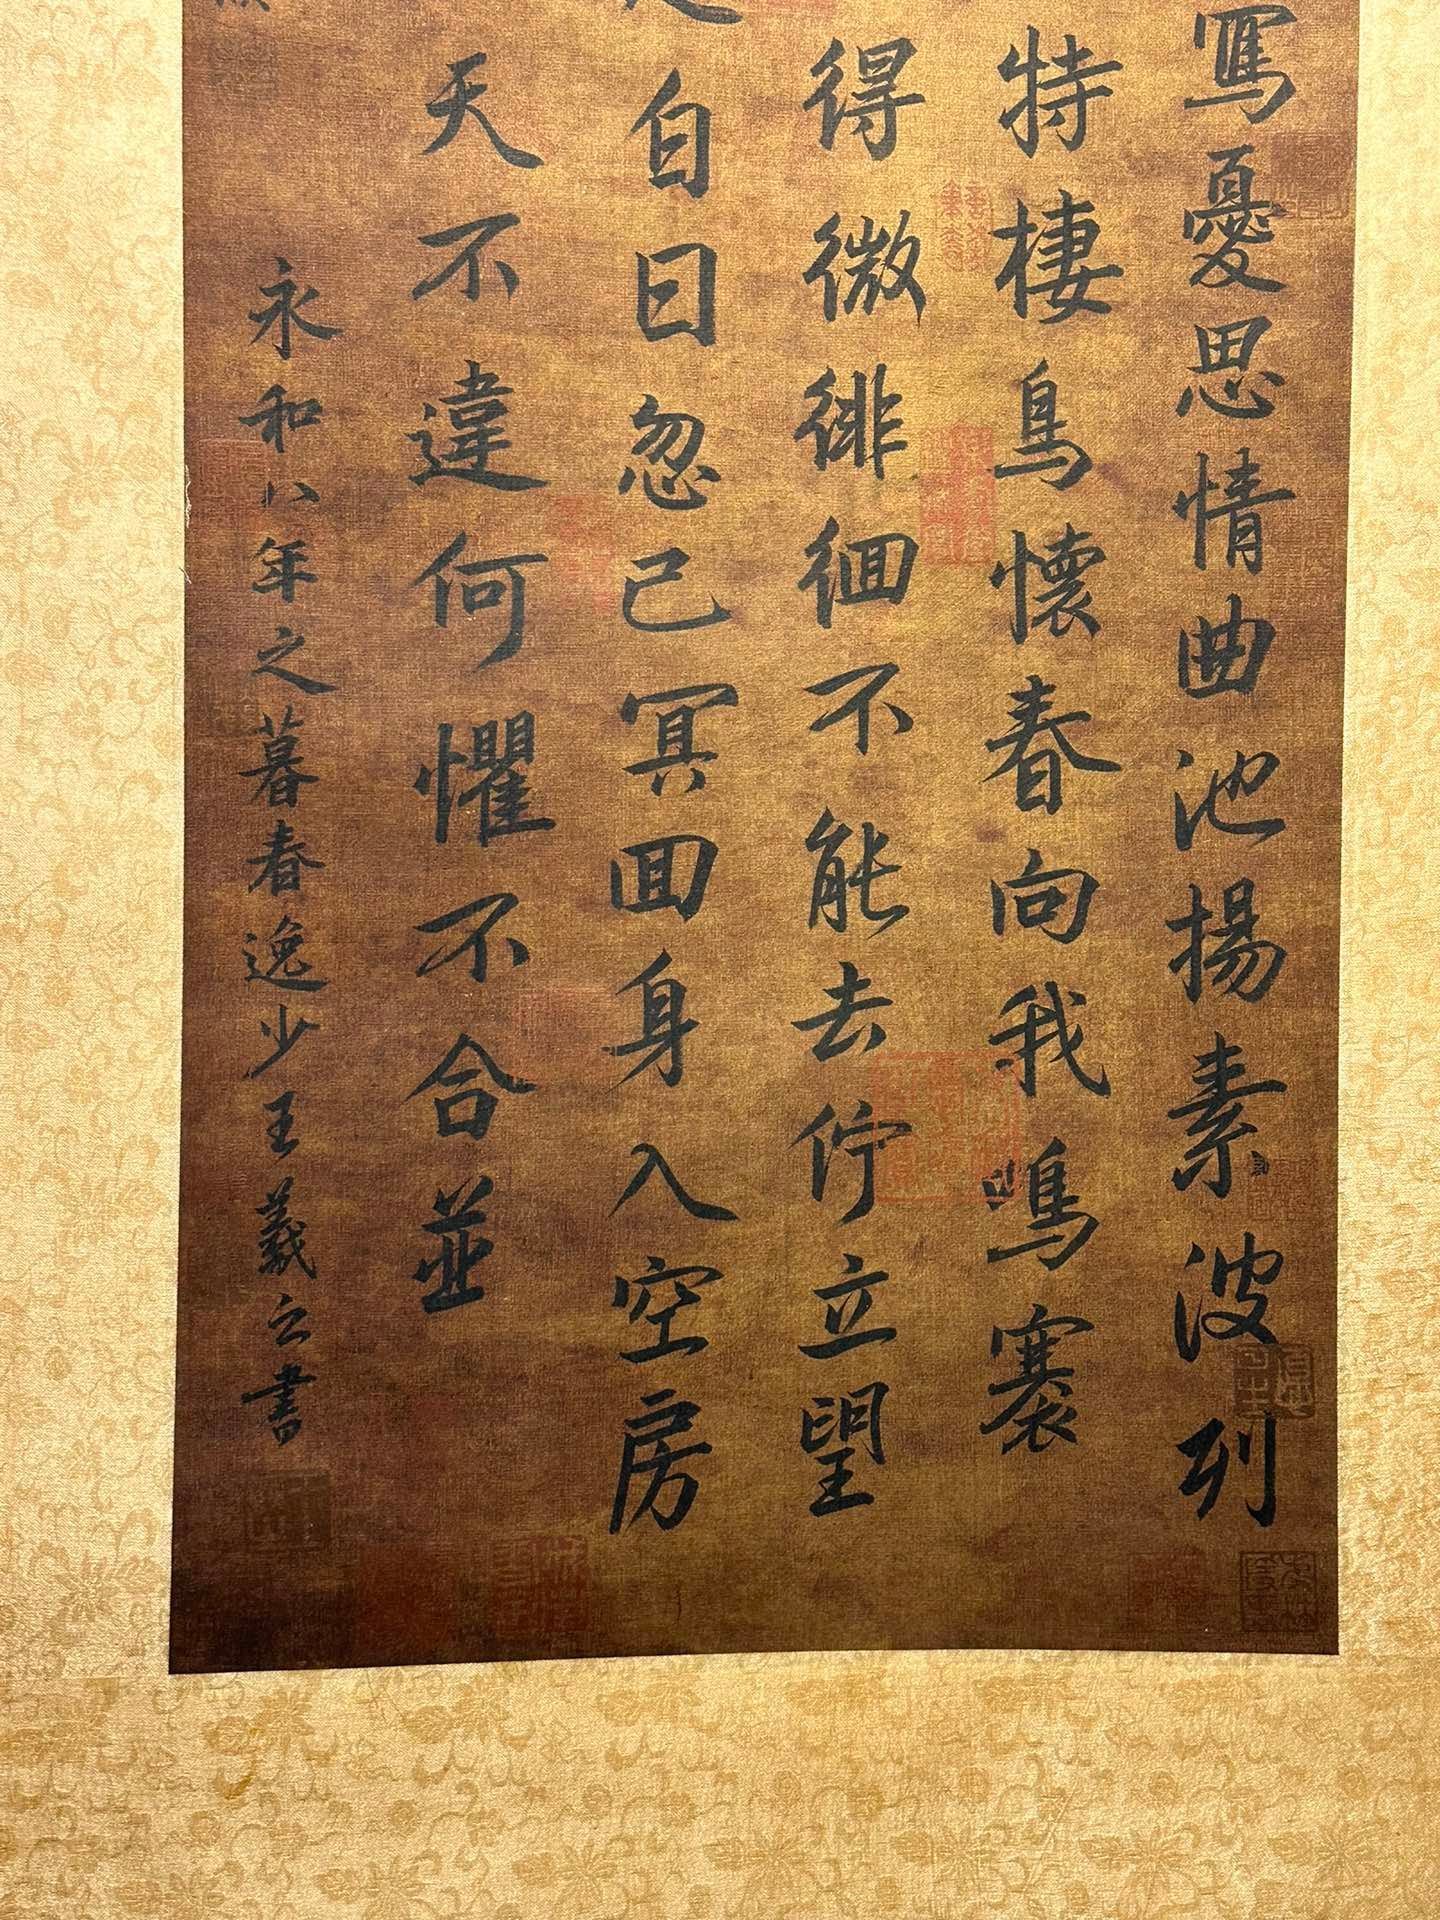 寫憂思情曲池揚素波列
特棲鳥懷春向我鳴褰
得微徘徊不能去佇立望
白日忽已冥回身入空房
天不違何懼不合並
永和八年之暮春逸少王羲之書